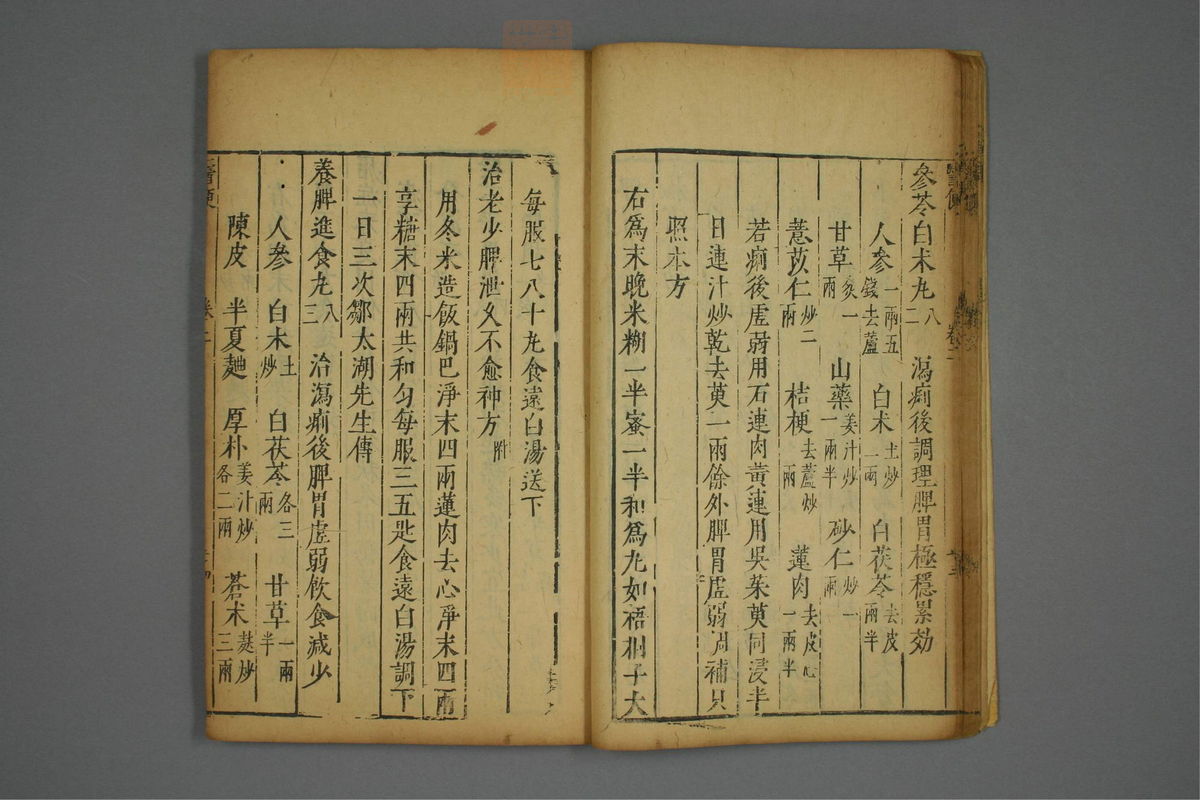 參苓白朮丸八二 瀉痢後調理脾胃極穩累効
人參一兩五錢去蘆 白朮土炒一兩 白茯苓去皮兩半
甘草炙一兩 山藥姜汁炒一兩半 砂仁炒一兩
薏苡仁炒二兩 桔梗去蘆炒兩 蓮肉去皮心一兩半
若痢後虛弱用石連肉黃連用吳茱萸同浸半
日連汁炒乾去萸一兩餘外脾胃虛弱調補只
照本方
右爲末晚米糊一半蜜一半和爲丸如梧桐子大
每服七八十丸食遠白湯送下
治老少脾泄久不愈神方附
用冬米造飯鍋巴淨末四兩蓮肉去心淨末四兩
享糖末四兩共和匀每服三五匙食遠白湯調下
一日三次鄒太湖先生傳
養脾進食丸八三 治瀉痢後脾胃虛弱飲食減少
人參 白朮土炒 白茯苓各三兩 甘草一兩半
陳皮 半夏麯 厚朴姜汁炒各二兩 蒼朮麩炒三兩
醫便 卷二